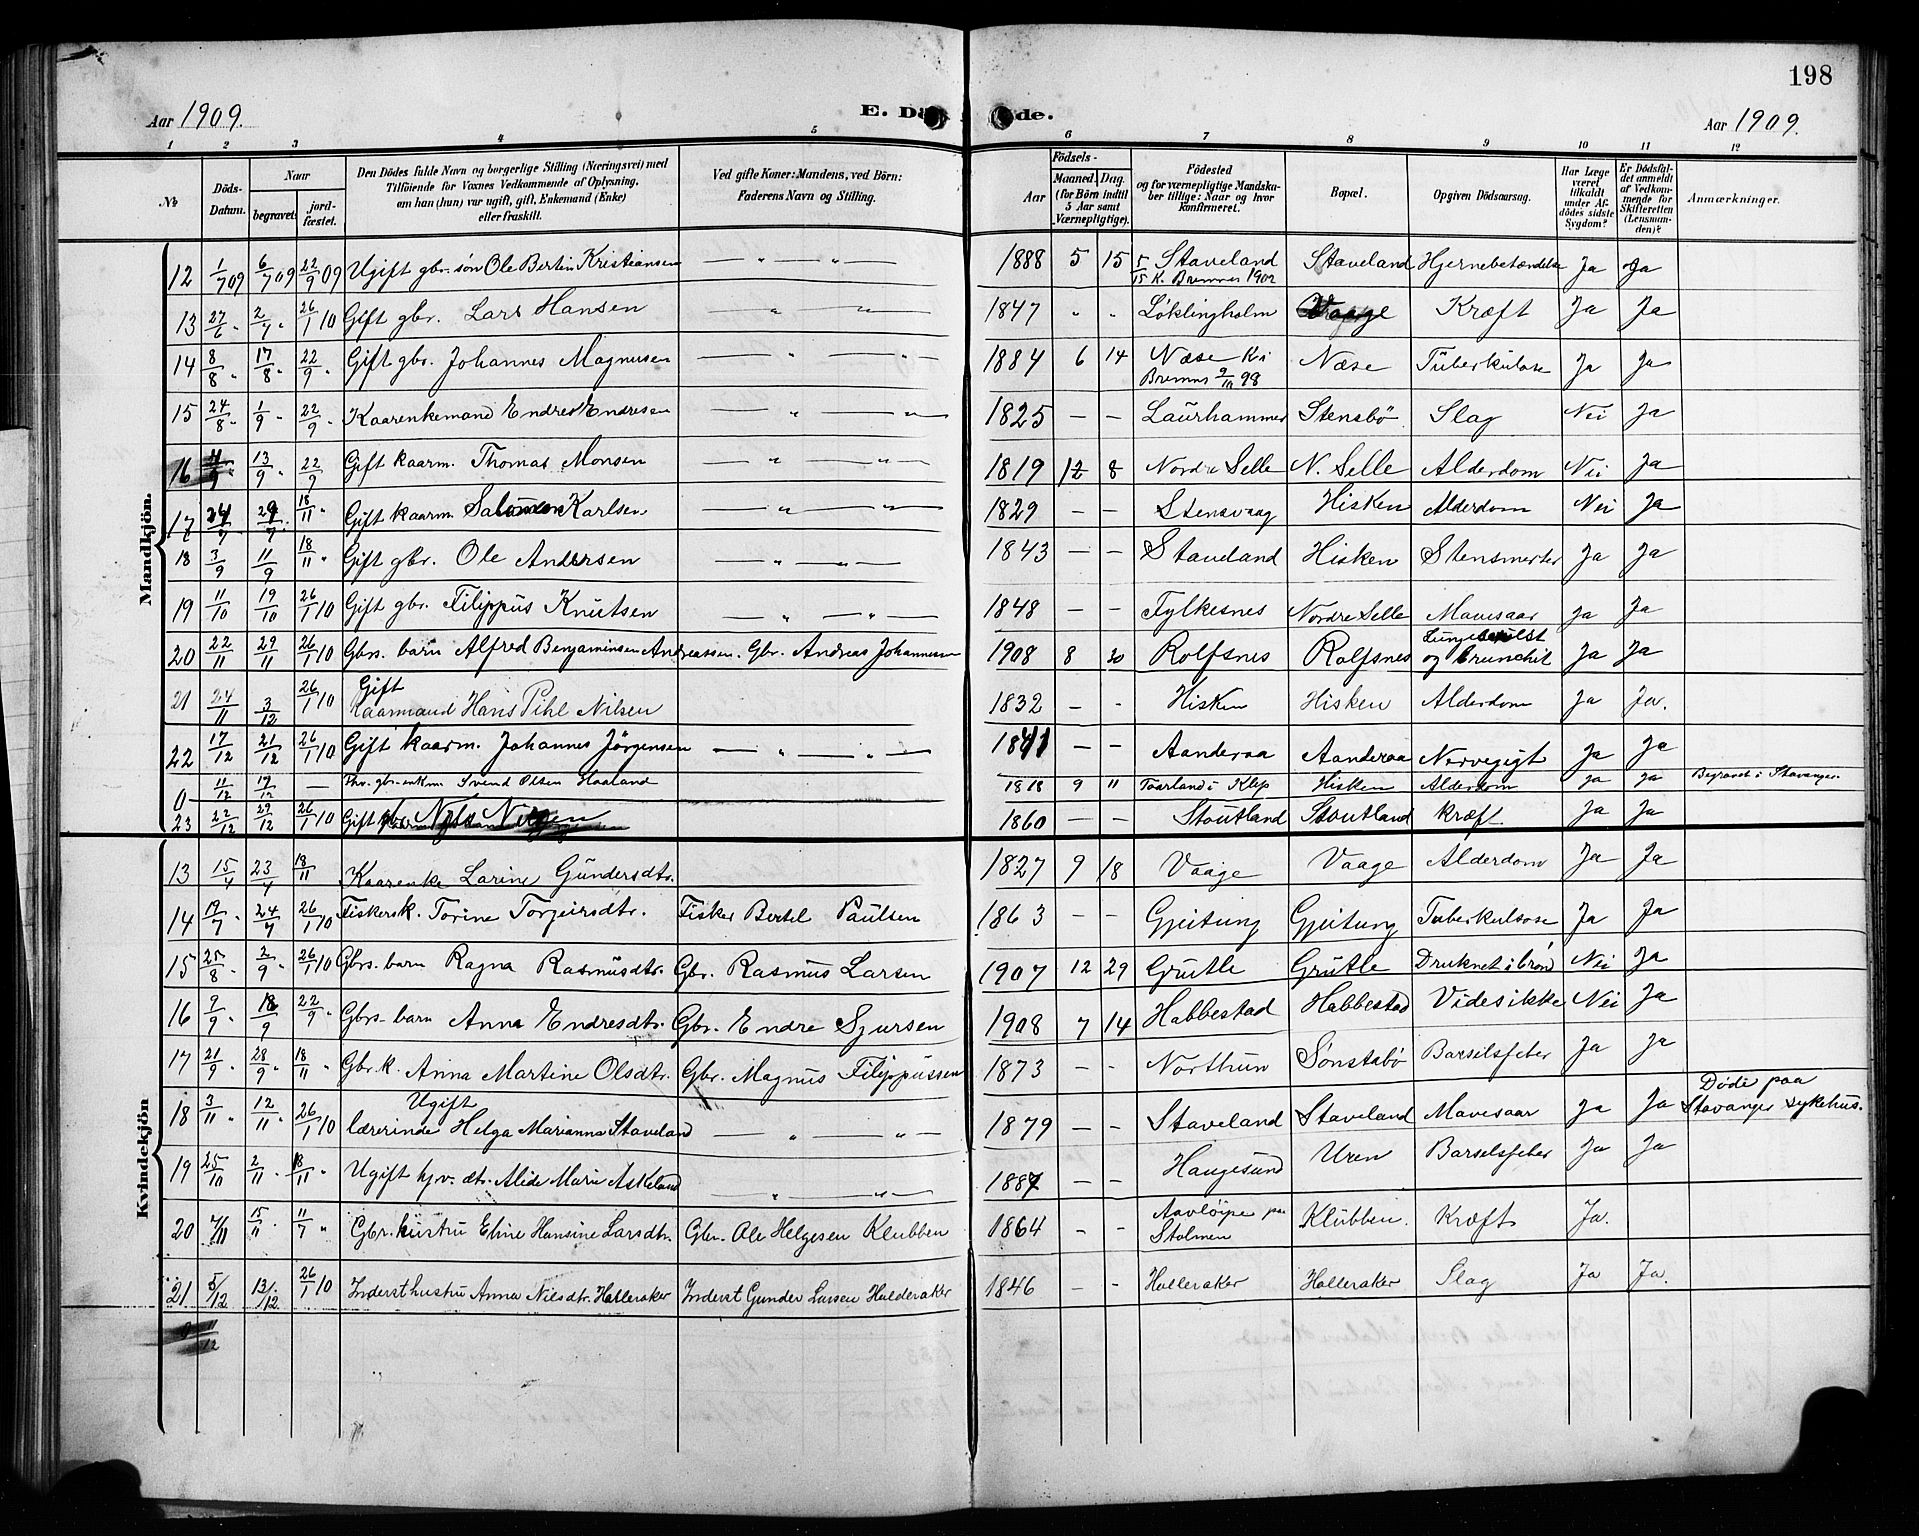 198
Aar 1909. E. Dö de. Aar 1909.
1 2 3 4 5 6 7 8 9 10 11 12
No
Döds-Datum.
Naar
begravet.
jord-fæstet.
Den Dödes fulde Navn og borgerlige Stilling (Næringsvei) med
Tilföiende for Voxnes Vedkommende af Oplysning,
om han (hun) var ugift, gift, Enkemand (Enke)
eller fraskilt.
Ved gifte Koner: Mandens, ved Börn:
Faderens Navn og Stilling.
Födsels-
Aar
Maaned. Dag.
(for Börn indtil
5 Aar samt
Værnepligtige).
Födested
og for værnepligtige Mandska-
ber tillige: Naar og hvor
konfirmeret.
Bopæl.
Opgiven Dödsaarsag.
Har Læge
været
tilkaldt
under Af-
dödes sidste
Sygdom?
Er Dödsfal-
det anmeldt
af Vedkom-
mende for
Skifteretten
(Lensman-
den)?
Anmærkninger.
Mandkjön.
12 1/7 09 6/7 09 22/9 09 Ugift gbr. søn Ole Bertin Kristiansen — " — " — 1888 5 15 Staveland Staveland Hjernebetændelse Ja Ja
5/15 K. Bremnes 1902
13 27/6 " 2/7 " 26/1 10 Gift gbr. Lars Hansen — " — " — 1847 " " Løklingholm Vaage Kræft Ja Ja
14 8/8 " 17/8 " 22/9 " Gift gbr. Johannes Magnusen — " — " 1884 6 14 Næse K. i Næse Tüberkulose Ja Ja
Bremnes 2/10 98
15 24/8 " 1/9 " 22/9 " Kaarenkemand Endres Endresen — " — " — 1825 — — Laurhammer Stensbö Slag Nei Ja
16 11/9 " 13/9 " 22/9 Gift kaarm. Thomas Monsen — " — " — 1819 12 8 Nordre Selle N. Selle Alderdom Nei Ja
17 24/7 29/7 " 18/11 " Gift kaarm. Salomon Karlsen — " — " — 1829 — — Stensvaag Hisken Alderdom Nei Ja
18 3/9 11/9 18/11 " Gift gbr. Ole Andersen — " — " — 1843 — — Staveland Hisken Stensmerter Ja Ja
19 11/10 19/10 26/1 10 Gift gbr. Filippus Knutsen — " — " — 1848 — — Fylkesnes Nordre Selle Mavesaar Ja Ja
20 22/11 29/11 26/1 10 Gbrs. barn Alfred Benjaminsen Andreassen. Gbr. Andreas Johannesen 1908 8 30 Rolfsnes Rolfsnes og brunchit Ja Ja
21 24/11 3/12 26/1 10 Gift
Kaarmand Hans Pihl Nilsen 1832 — - Hisken Hisken Alderdom Ja Ja.
22 17/12 21/12 26/1 10 Gift kaarm. Johannes Jörgensen — " — " — 1841 — — Aanderaa Aanderaa Nervegigt Ja Ja
0 11/12 17/12 — gbr. enkm. Svend Olsen Haaland 1818 9 " Taarland i Klep Hisken Alderdom Ja Ja Begravet i Stavanger.
23 22/12 29/12 26/1 10 Gift gbr. Nils Nilsen 1860 — — Stoutland Stoutland kræft Ja Ja
Kvindekjön
13 15/4 23/4 18/11 Kaarenke Larine Gundersdtr. 1827 9 18 Vaage Vaage Alderdom Ja Ja
14 17/7 " 24/7 " 26/1 10 Fiskersk. Torine Torgeirsdtr. Fisker Bertel Paulsen 1863 — — Gjeitung Gjeitung Tuberkulose Ja Ja
15 25/8 " 2/9 " 26/1 10 Gbrs. barn Ragna Rasmusdtr. Gbr. Rasmus Larsen 1907 12 29 Grutle Grutle Druknet i brönd Nei Ja
16 9/9 " 18/9 22/9 " Gbrs. barn Anna Endresdtr. Gbr. Endre Sjursen 1908 7 14 Habbestad Habbestad Vides ikke Nei Ja
17 21/9 " 28/9 " 18/11 " Gbr.k. Anna Martine Olsdtr. Gbr. Magnus Filippussen 1873 — - Northun Sønstabø Barselsfeber Ja Ja
18 3/11 " 12/11 " 26/1 10 Ugift
lærerinde Helga Marianna Staveland — " — " — 1879 — — Staveland Staveland Mavesaar Ja Ja Døde paa
Stavanger sykehus.
19 25/10 2/11 18/11 " Ugift hjv. dtr. Alide Marie Askeland — " — " — 1887 — — Haugesund Uren Barselsfeber Ja Ja
20 7/11 15/11 " 11/7 " Gbr. hustru Eline Hansine Larsdtr. Gbr. Ole Helgesen Klubben 1864 — - Aavløipe paa Klübben. Kræft Ja.
Stolmen
21 5/12 13/12 26/1 10 Inderst hustru Anna Nilsdtr. Halleraker Inderst Gunder Larsen Halderaker 1846 — - Halleraker Halleraker Slag Ja Ja.
11/12